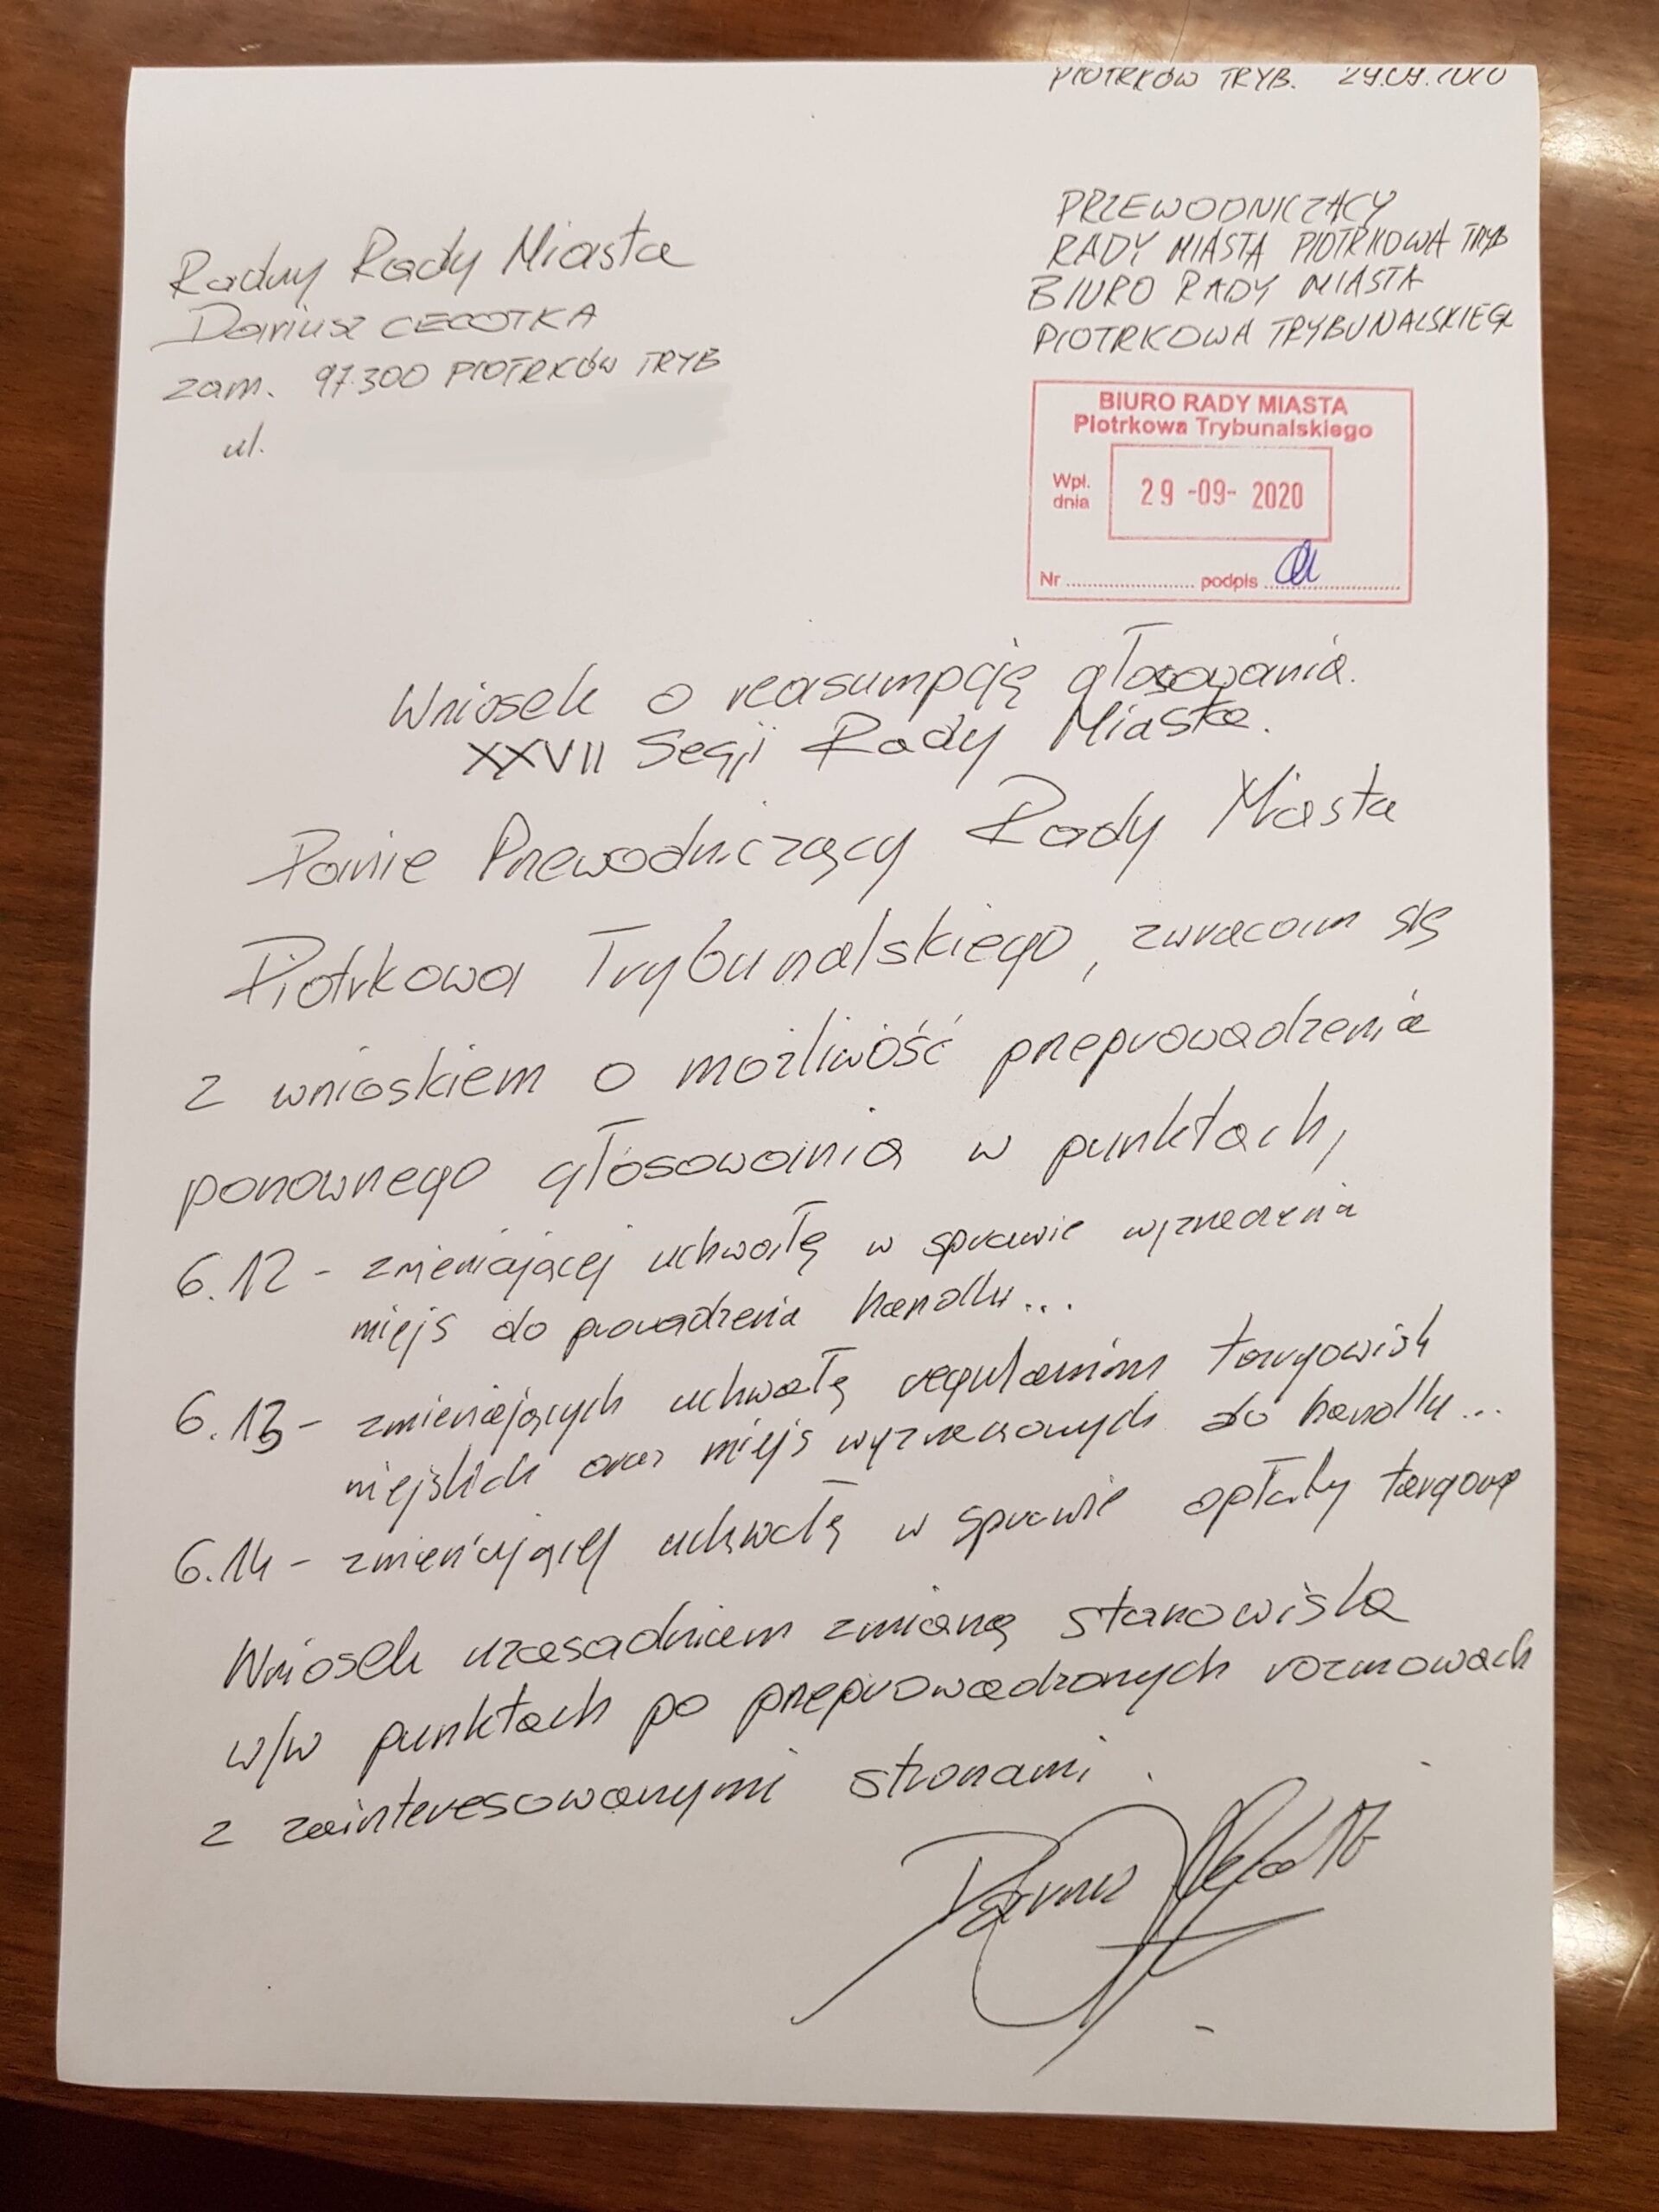 PIOTRKÓW TRYB. 29.09.2020
Radny Rady Miasta
Dariusz CECOTKA
zam. 97-300 PIOTRKÓW TRYB
ul.
PRZEWODNICZĄCY
RADY MIASTA PIOTRKOWA TRYB
BIURO RADY MIASTA
PIOTRKOWA TRYBUNALSKIEGO
BIURO RADY MIASTA
Piotrkowa Trybunalskiego
Wpł.
dnia
29 -09- 2020
Nr ........................ podpis ........................
Wniosek o reasumpcję głosowania.
XXVII Sesji Rady Miasta.
Panie Przewodniczący Rady Miasta
Piotrkowa Trybunalskiego, zwracam się
z wnioskiem o możliwość przeprowadzenia
ponownego głosowania w punktach,
6.12 - zmieniającej uchwałę w sprawie wyznaczenia
miejs do prowadzenia handlu...
6.13 - zmieniających uchwałę regulaminu targowisk
miejskich oraz miejs wyznaczonych do handlu...
6.14 - zmieniającej uchwałę w sprawie opłaty targowej
Wniosek uzasadniam zmianą stanowiska
w/w punktach po przeprowadzonych rozmowach
z zainteresowanymi stronami.
Dariusz Cecotka